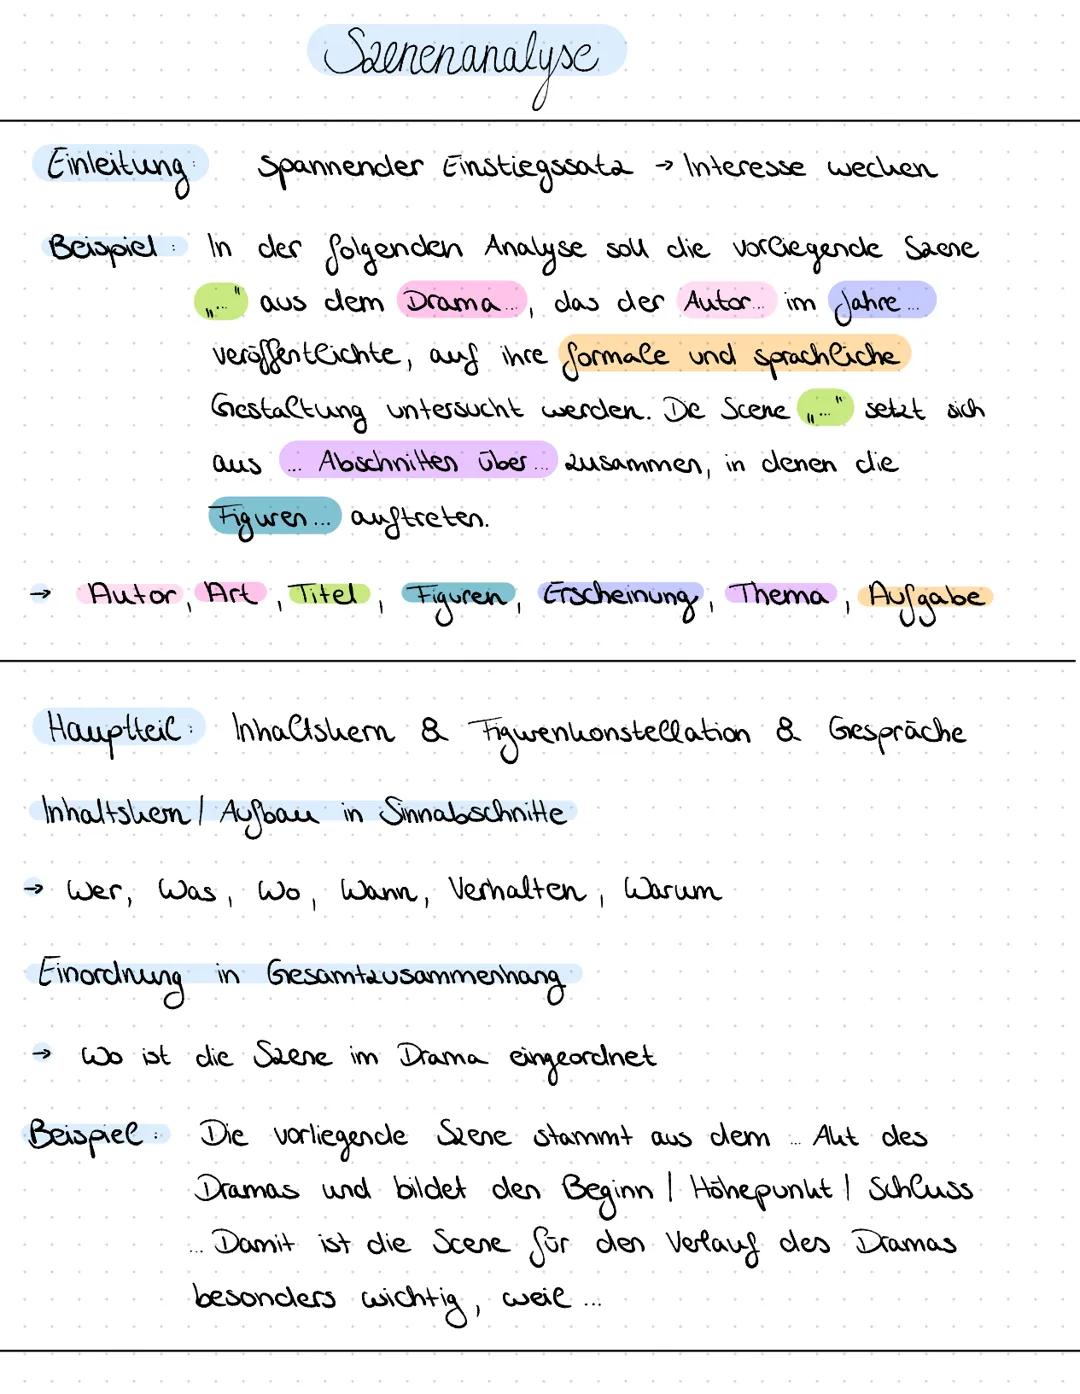 Szenenanalyse
Einleitung: Spannender Einstiegssatz → Interesse wecken
Beispiel: In der folgenden Analyse soll die vorliegende Szene
„..." aus dem Drama..., das der Autor... im Jahre...
veröffentlichte, auf ihre formale und sprachliche
Gestaltung untersucht werden. De Scene „..." setzt sich
aus ... Abschnitten über... zusammen, in denen die
Figuren... auftreten.
→ Autor, Art, Titel, Figuren, Erscheinung, Thema, Aufgabe
Hauptteil: Inhaltskern & Figurenkonstellation & Gespräche
Inhaltskern / Aufbau in Sinnabschnitte
→ Wer, Was, Wo, Wann, Verhalten, Warum
Einordnung in Gesamtzusammenhang
→ Wo ist die Szene im Drama eingeordnet
Beispiel: Die vorliegende Szene stammt aus dem ... Akt des
Dramas und bildet den Beginn / Höhepunkt / Schluss
... Damit ist die Scene für den Verlauf des Dramas
besonders wichtig, weil ...